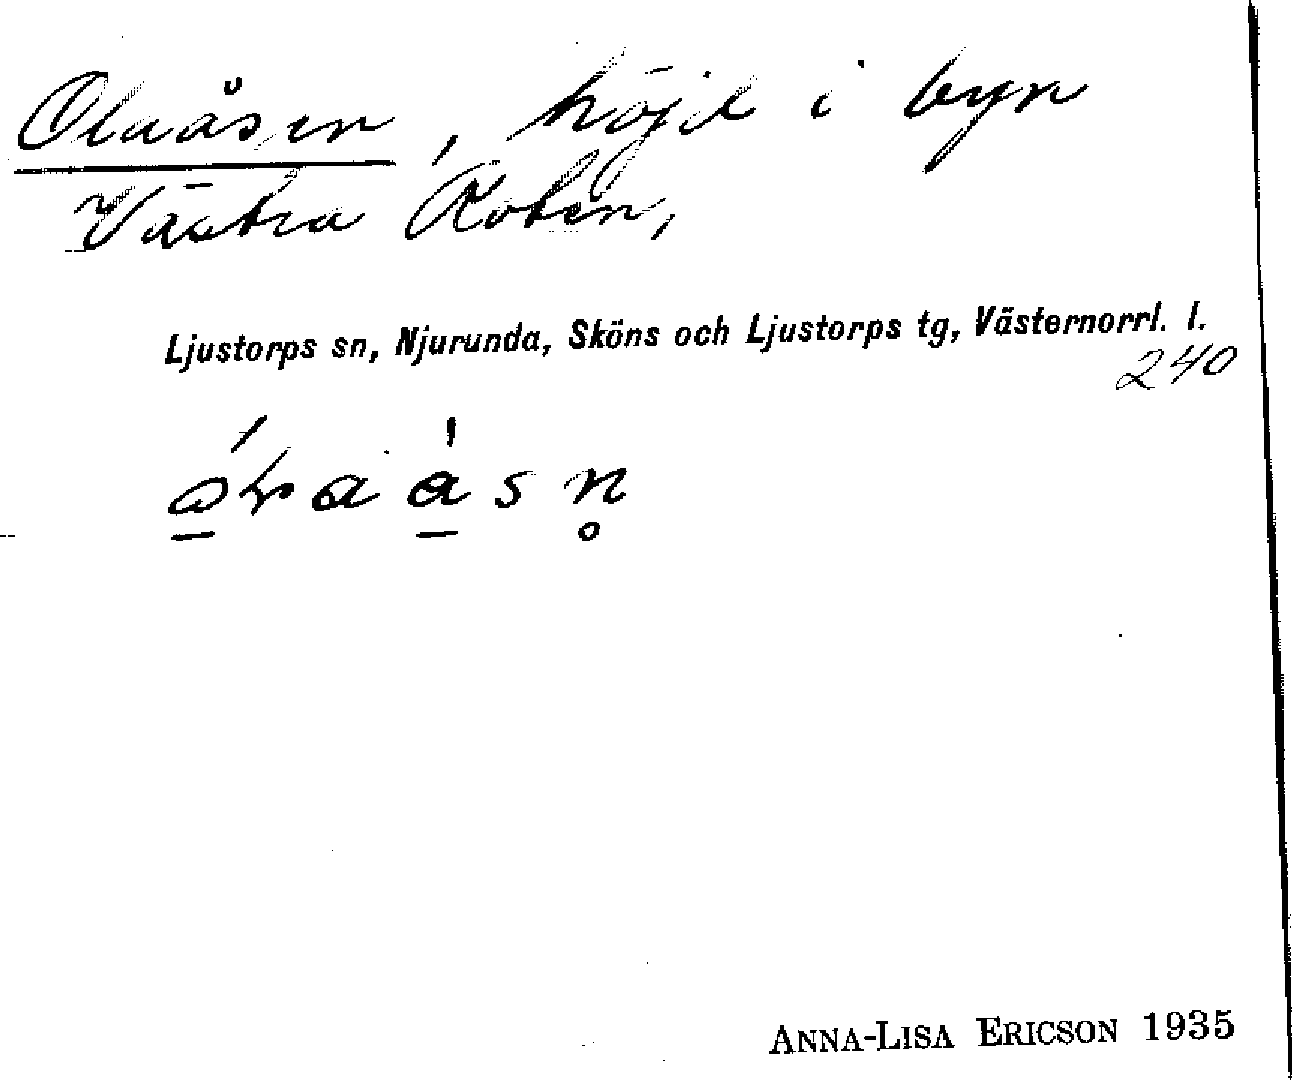 Olaåsen, höjd i byn
Västra Roten,
Ljustorps sn, Njurunda, Sköns och Ljustorps tg, Västernorrl. l.
240
ANNA-LISA ERICSON 1935